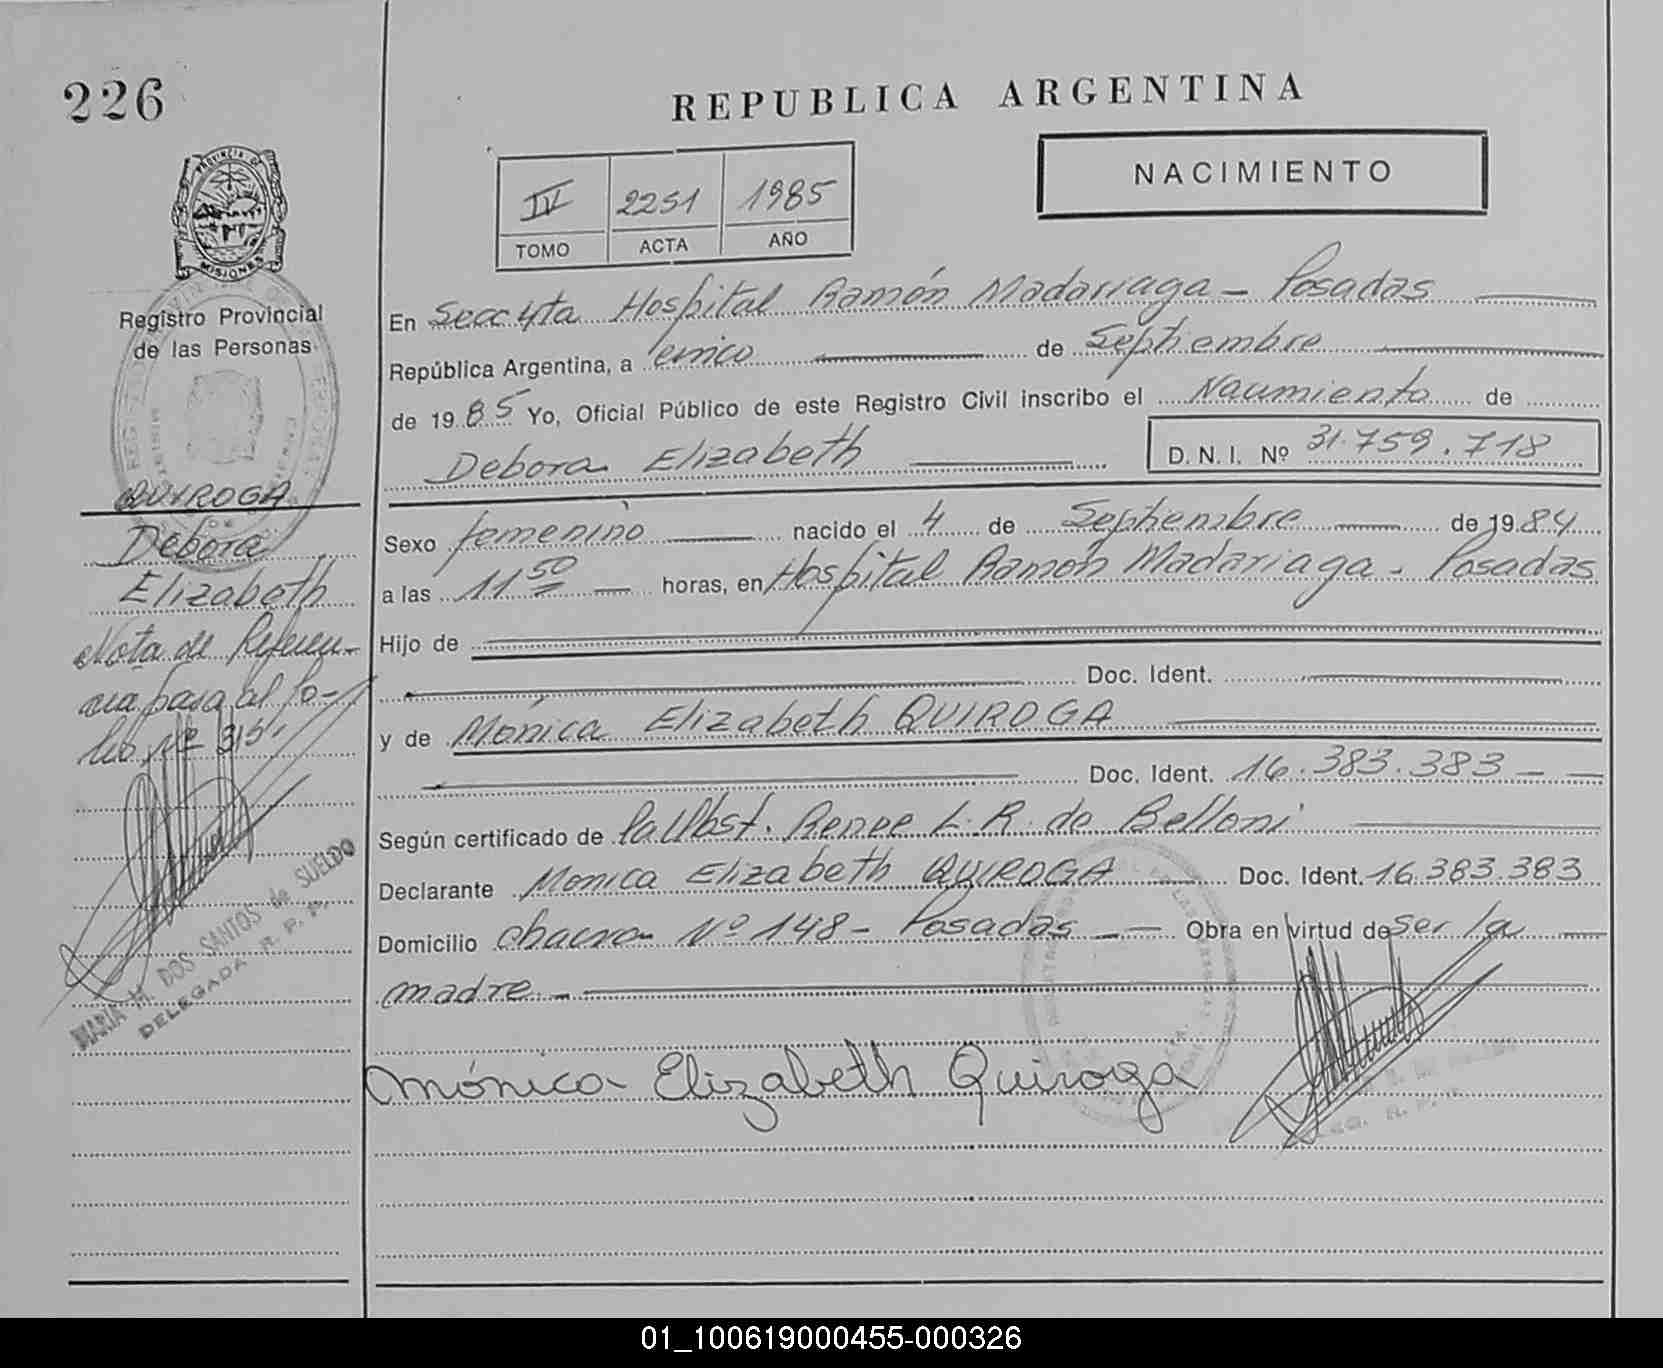 226
REPUBLICA ARGENTINA
NACIMIENTO
IV 2251 1985
TOMO ACTA AÑO
PROVINCIA DE
MISIONES
Registro Provincial
de las Personas
QUIROGA
Debora
Elizabeth
Nota de Referen-
cia pasa al fo-
lio Nº 315
MARIA M. DOS SANTOS de SUELDO
DELEGADA R. P. P.
En Secc 4ta Hospital Ramón Madariaga - Posadas
República Argentina, a cinco de Septiembre
de 1985 Yo, Oficial Público de este Registro Civil inscribo el Nacimiento de
Debora Elizabeth D. N. I. Nº 31.759.718
Sexo femenino nacido el 4 de Septiembre de 1984
a las 11 50 horas, en Hospital Ramón Madariaga - Posadas
Hijo de
Doc. Ident.
y de Mónica Elizabeth QUIROGA
Doc. Ident. 16.383.383
Según certificado de la Obst. Renee L. R. de Belloni
Declarante Monica Elizabeth QUIROGA Doc. Ident. 16.383.383
Domicilio chacra Nº 148 - Posadas Obra en virtud de ser la
madre
Mónica Elizabeth Quiroga
01_100619000455-000326